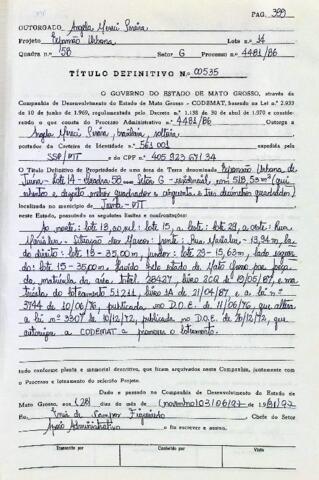 PAG. 399
OUTORGADO, Angela Yersi Pereira
Projeto Expansão Urbana Lote n.º 14
Quadra n.º 58 Setor G Processo n.º 4481/86
TÍTULO DEFINITIVO N.º 00535
O GOVERNO DO ESTADO DE MATO GROSSO, através da
Companhia de Desenvolvimento do Estado de Mato Grosso - CODEMAT, baseado na Lei n.º 2.933
de 10 de junho de 1969, regulamentada pelo Decreto n.º 1.138 de 30 de abril de 1970 e conside-
rando o que consta do Processo Administrativo n.º 4481/86 Outorga a
Angela Pereira, brasileira, solteira
portador da Carteira de Identidade n.º 561 001 expedida pela
SSP/MT e do CPF n.º
O Título Definitivo de Propriedade de uma área de Terra denominada Expansão Urbana de
Juína - Lote 14 - Quadra 58 - Setor G - residencial, com 518,53 m² (qui
nhentos e dezoito metros quadrados e cinquenta e três decímetros quadrados)
localizada no município de Juína - MT
neste Estado, possuindo os seguintes limites e confrontações:
Ao norte: lote 13, ao sul: lote 15, a leste: lote 29, a oeste: Rua
Situação dos Marcos: frente: Rua - 13,94 m, la
do direito: lote 13 - 35,00 m, fundos: lote 29 - 15,63 m, lado esquer
do: lote 15 - 35,00 m. Havido pelo estado de Mato Grosso por força
da matrícula da área total 28427, livro 2CQ de 19/05/87, e ma
trícula do loteamento 51211, livro 1A de 21/04/87 e a lei n.º
3744 de 10/06/76, publicada no D.O.E. de 11/06/76, que altera
a lei n.º 3307 de 18/12/72, publicada no D.O.E. de 26/12/72, que
autoriza a CODEMAT a promover o loteamento.
tudo conforme planta e memorial descritivo, que ficam arquivados nesta Companhia, juntamente com
o Processo e loteamento do referido Projeto.
Dado e passado na Companhia de Desenvolvimento do Estado de
Mato Grosso, aos (28) dias do mês de
Eu, de Campos Figueiredo Chefe do Setor
Apoio Administrativo o fiz escrever e assino.
Transcrito por Conferido por Visto